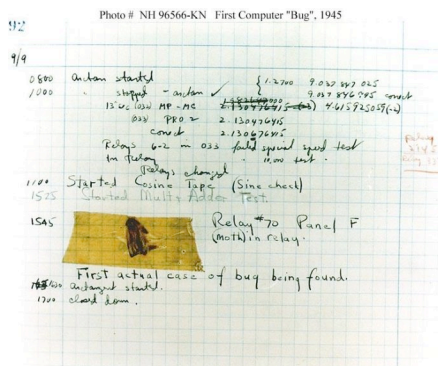 Photo # NH 96566-KN First Computer "Bug", 1945
92
9/9
0800 Antan started
1000 " stopped - antan ✓ { 1.2700 9.037 847 025
9.037 846 995 correct
13"uc (032) MP - MC 2.130476415 4.615925059(-2)
(033) PRO 2 2.130476415
correct 2.130676415
Relays 6-2 in 033 failed special speed test
in relay " 10.00 test.
Relays changed
1100 Started Cosine Tape (Sine check)
1525 Started Multi Adder Test.
1545 Relay #70 Panel F
(moth) in relay.
First actual case of bug being found.
1630 antangent started.
1700 closed down.